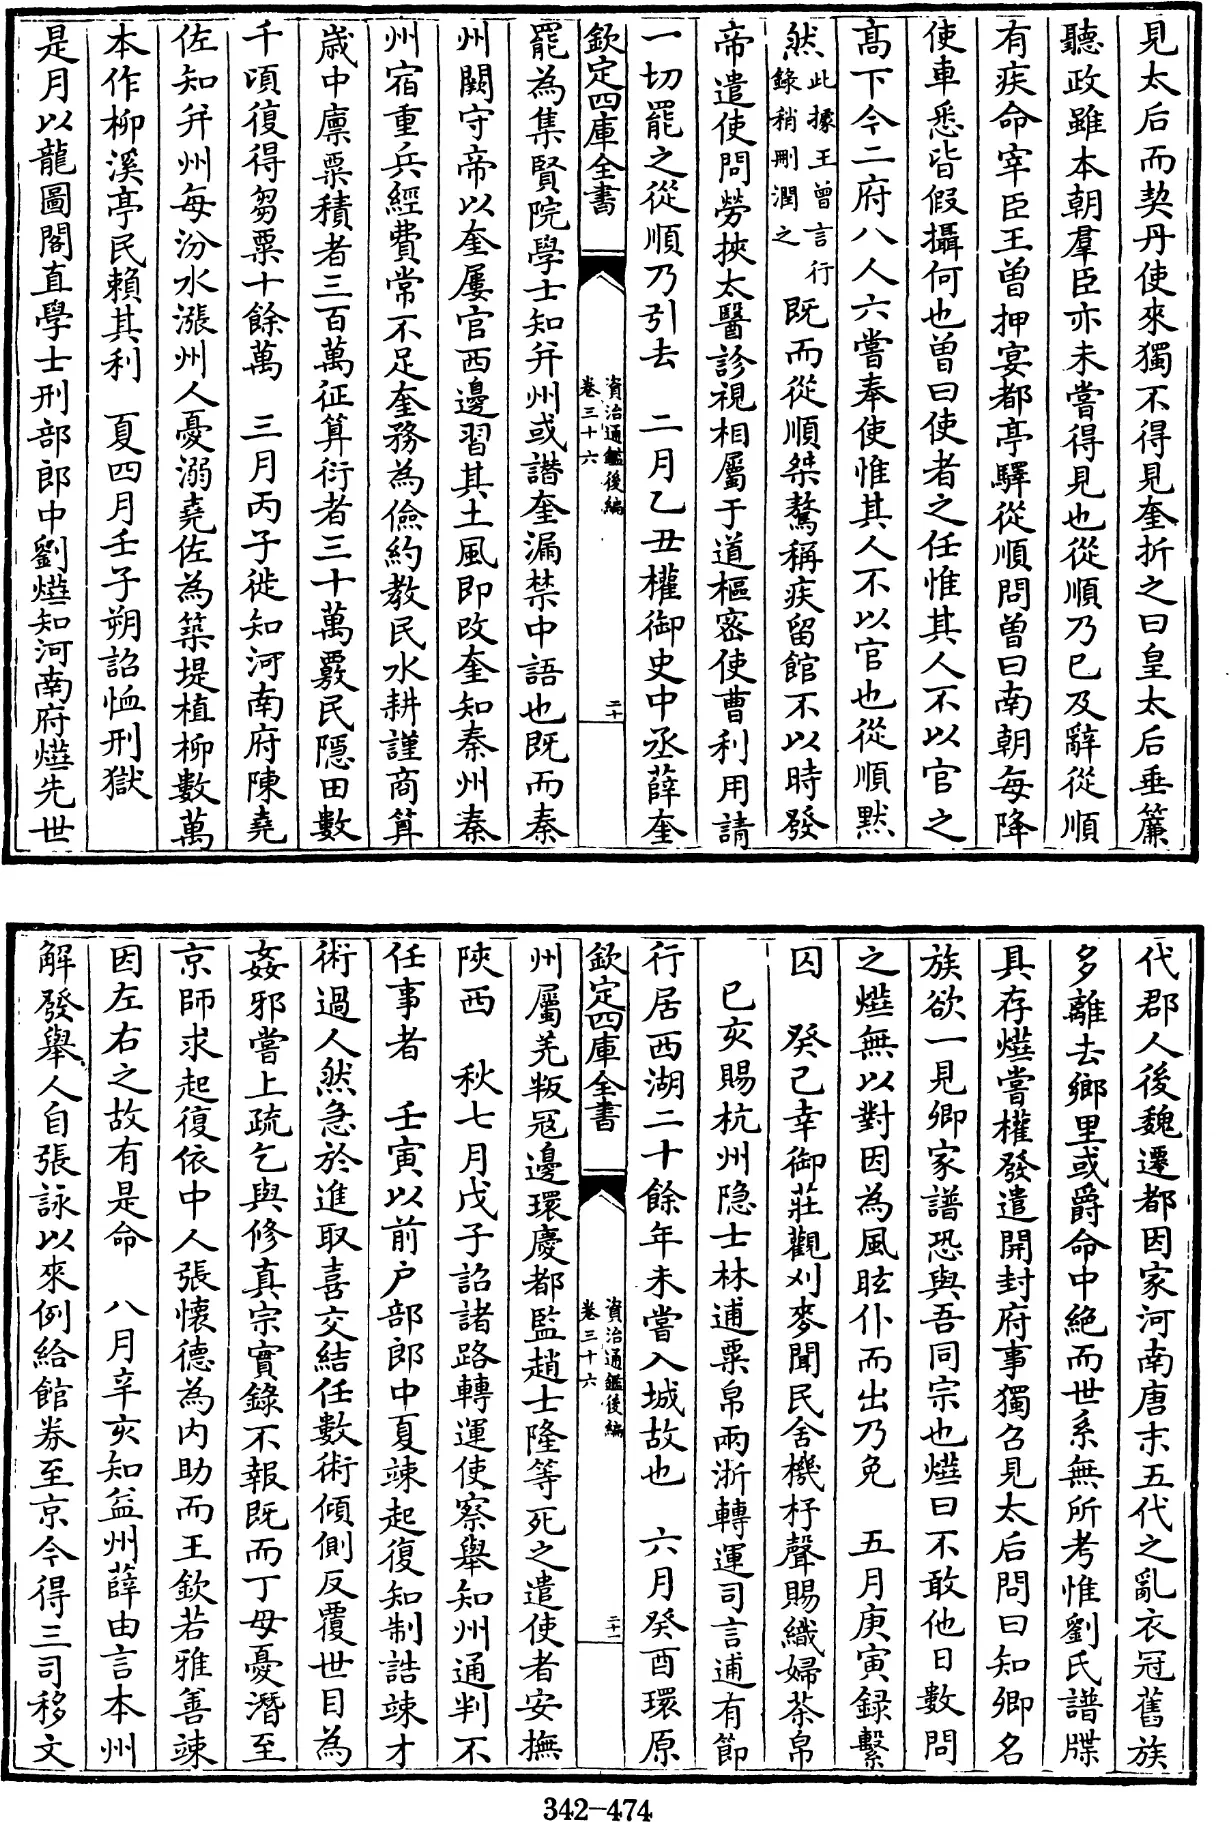 見太后而契丹使來獨不得見奎折之曰皇太后垂簾
聽政雖本朝羣臣亦未嘗得見也從順乃已及辭從順
有疾命宰臣王曾押宴都亭驛從順問曾曰南朝每降
使車悉皆假攝何也曾曰使者之任惟其人不以官之
髙下今二府八人六嘗奉使惟其人不以官也從順黙
然此據王曾言行錄稍刪潤之既而從順桀驁稱疾留館不以時發
帝遣使問勞挾太醫診視相屬于道樞宻使曹利用請
一切罷之從順乃引去　二月乙丑權御史中丞薛奎
欽定四庫全書
資治通鑑後編
卷三十六
二十
罷為集賢院學士知并州或譖奎漏禁中語也既而秦
州闕守帝以奎屢官西邊習其土風即改奎知秦州秦
州宿重兵經費常不足奎務為儉約教民水耕謹商算
歲中廪粟積者三百萬征算衍者三十萬覈民隱田數
千頃復得芻粟十餘萬　三月丙子徙知河南府陳堯
佐知并州每汾水漲州人憂溺堯佐為築堤植柳數萬
本作柳溪亭民賴其利　夏四月壬子朔詔恤刑獄
是月以龍圖閣直學士刑部郎中劉燁知河南府燁先世
代郡人後魏遷都因家河南唐末五代之亂衣冠舊族
多離去鄉里或爵命中絶而世系無所考惟劉氏譜牒
具存燁嘗權發遣開封府事獨召見太后問曰知卿名
族欲一見卿家譜恐與吾同宗也燁曰不敢他日數問
之燁無以對因為風眩仆而出乃免　五月庚寅録繫
囚　癸己幸御莊觀刈麥聞民舍機杼聲賜織婦茶帛
己亥賜杭州隐士林逋粟帛兩浙轉運司言逋有節
行居西湖二十餘年未嘗入城故也　六月癸酉環原
欽定四庫全書
資治通鑑後編
卷三十六
二十一
州屬羌叛冦邊環慶都監趙士隆等死之遣使者安撫
陜西　秋七月戊子詔諸路轉運使察舉知州通判不
任事者　壬寅以前户部郎中夏竦起復知制誥竦才
術過人然急於進取喜交結任數術傾側反覆世目為
姦邪嘗上疏乞與修真宗實錄不報既而丁母憂潛至
京師求起復依中人張懷德為内助而王欽若雅善竦
因左右之故有是命　八月辛亥知益州薛由言本州
解發舉人自張詠以來例給館券至京今得三司移文
342-474